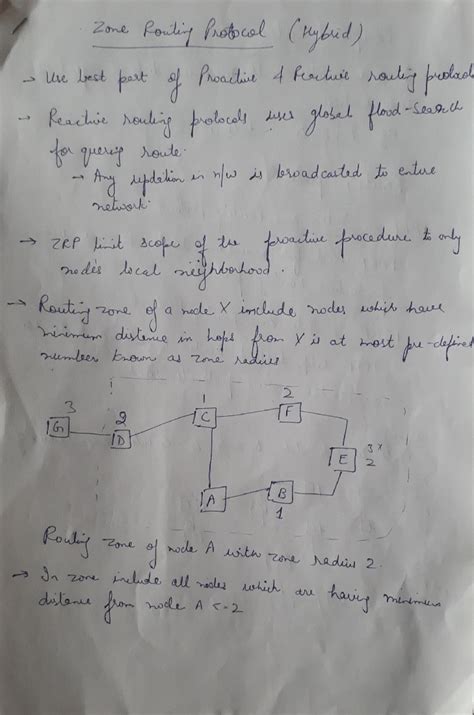 Zone Routing Protocol (Hybrid)
→ Use best part of Proactive & Reactive routing protocols
→ Reactive routing protocols uses global flood-search
for querying route.
→ Any updation in n/w is broadcasted to entire
network.
→ ZRP limit scope of the proactive procedure to only
nodes local neighborhood.
→ Routing zone of a node X include nodes which have
minimum distance in hops from X is at most pre-defined
number known as zone radius
3 2 1 2
G D C F
3x
E 2
A B
1
Routing zone of node A with zone radius 2.
→ In zone include all nodes which are having minimum
distance from node A <=2